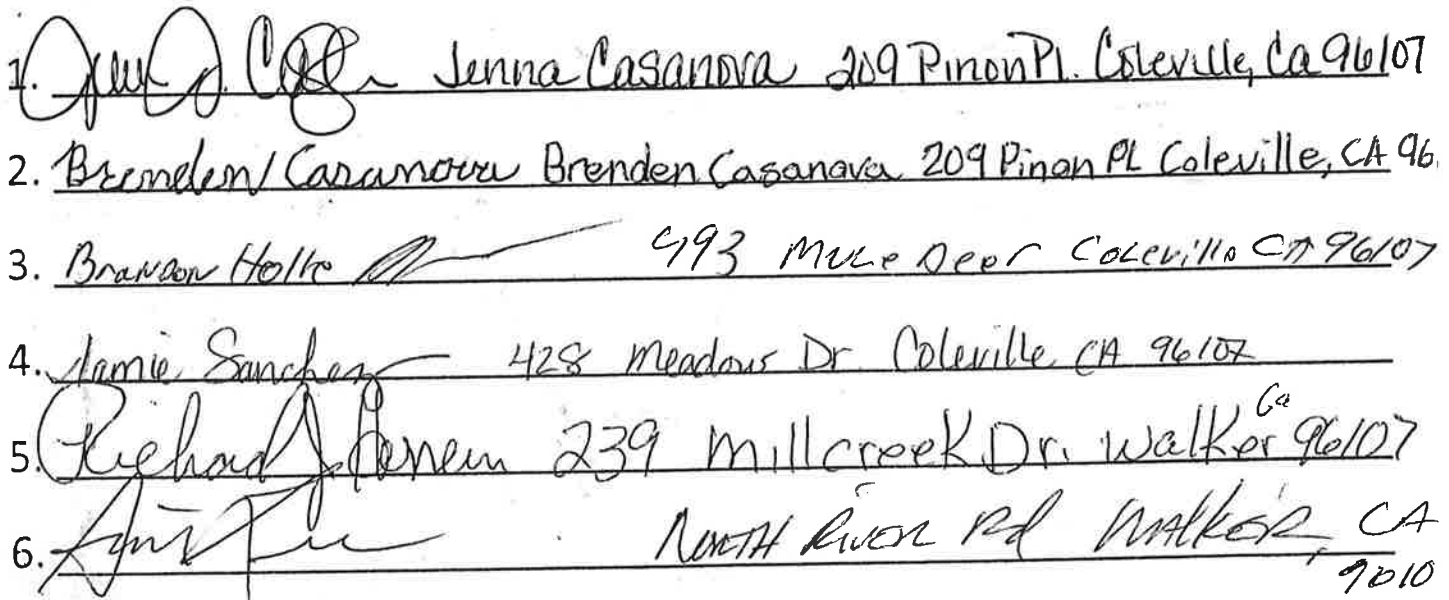 1. Jenna Casanova 209 Pinon Pl. Coleville, Ca 96107
2. Brenden Casanova Brenden Casanova 209 Pinon PL Coleville, CA 96
3. Brandon Holle 493 Mule Deer Coleville CA 96107
4. Jamie Sanchez 428 Meadows Dr. Coleville CA 96107
5. Richard J. 239 Millcreek Dr. Walker Ca 96107
6. North River Rd Walker, CA
9610